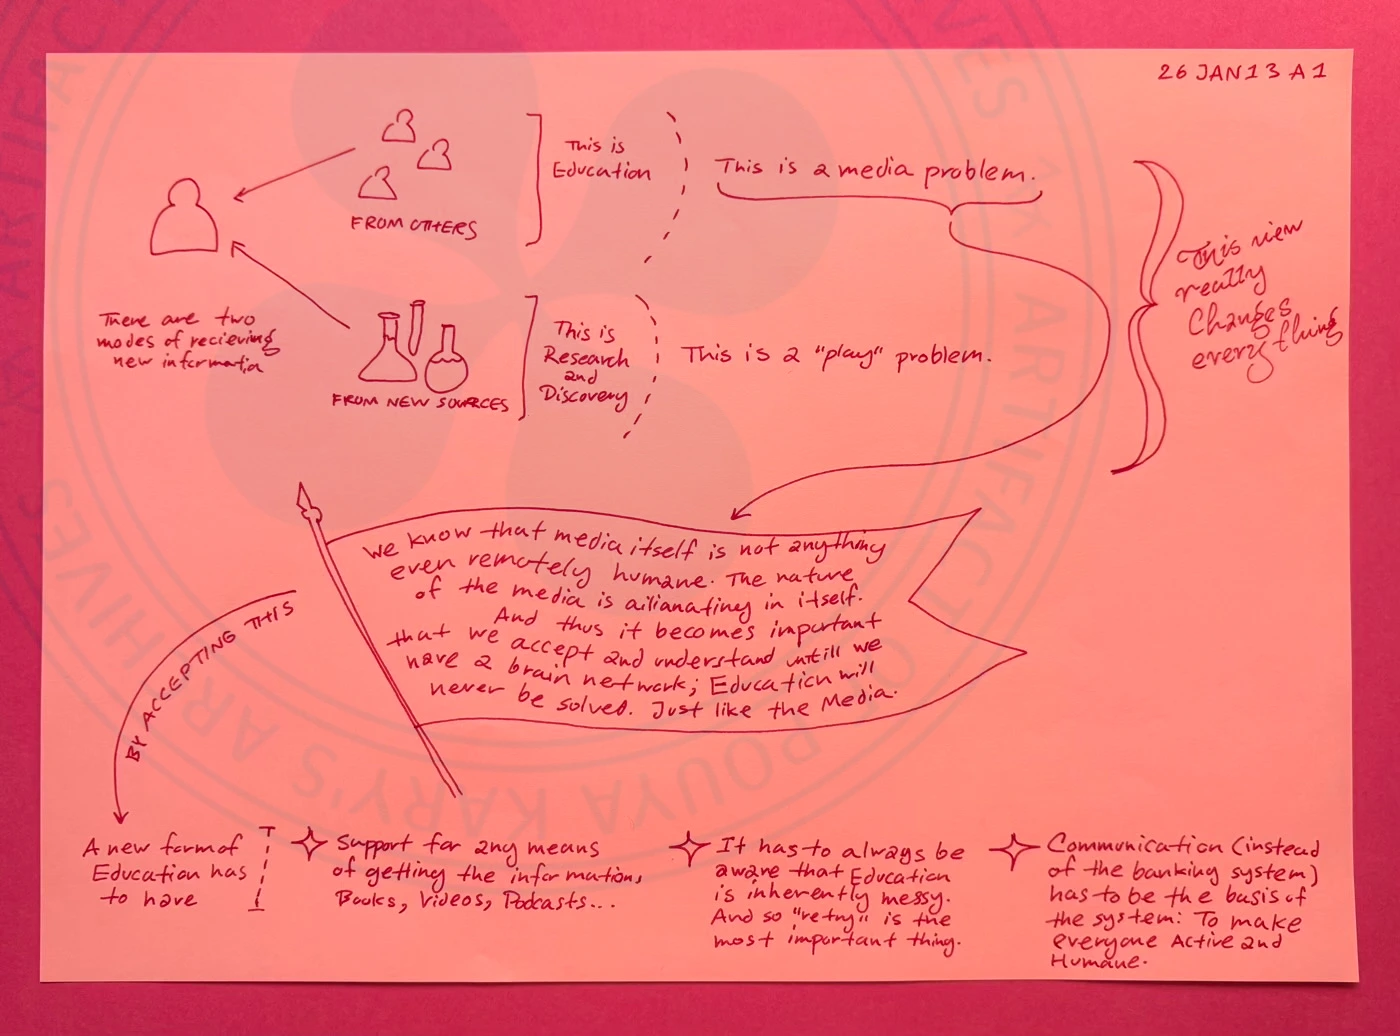 26 JAN 13 A1
FROM OTHERS
This is
Education
This is a media problem.
There are two
modes of recieving
new information
FROM NEW SOURCES
This is
Research
and
Discovery
This is a "play" problem.
This view
really
Changes
everything
We know that media itself is not anything
even remotely humane. The nature
of the media is ailianating in itself.
And thus it becomes important
that we accept and understand untill we
have a brain network; Education will
never be solved. Just like the Media.
BY ACCEPTING THIS
A new form of
Education has
to have
Support for any means
of getting the information,
Books, Videos, Podcasts...
It has to always be
aware that Education
is inherently messy.
And so "retry" is the
most important thing.
Communication (instead
of the banking system)
has to be the basis of
the system: To make
everyone Active and
Humane.
POUYA KARY'S ARCHIVES